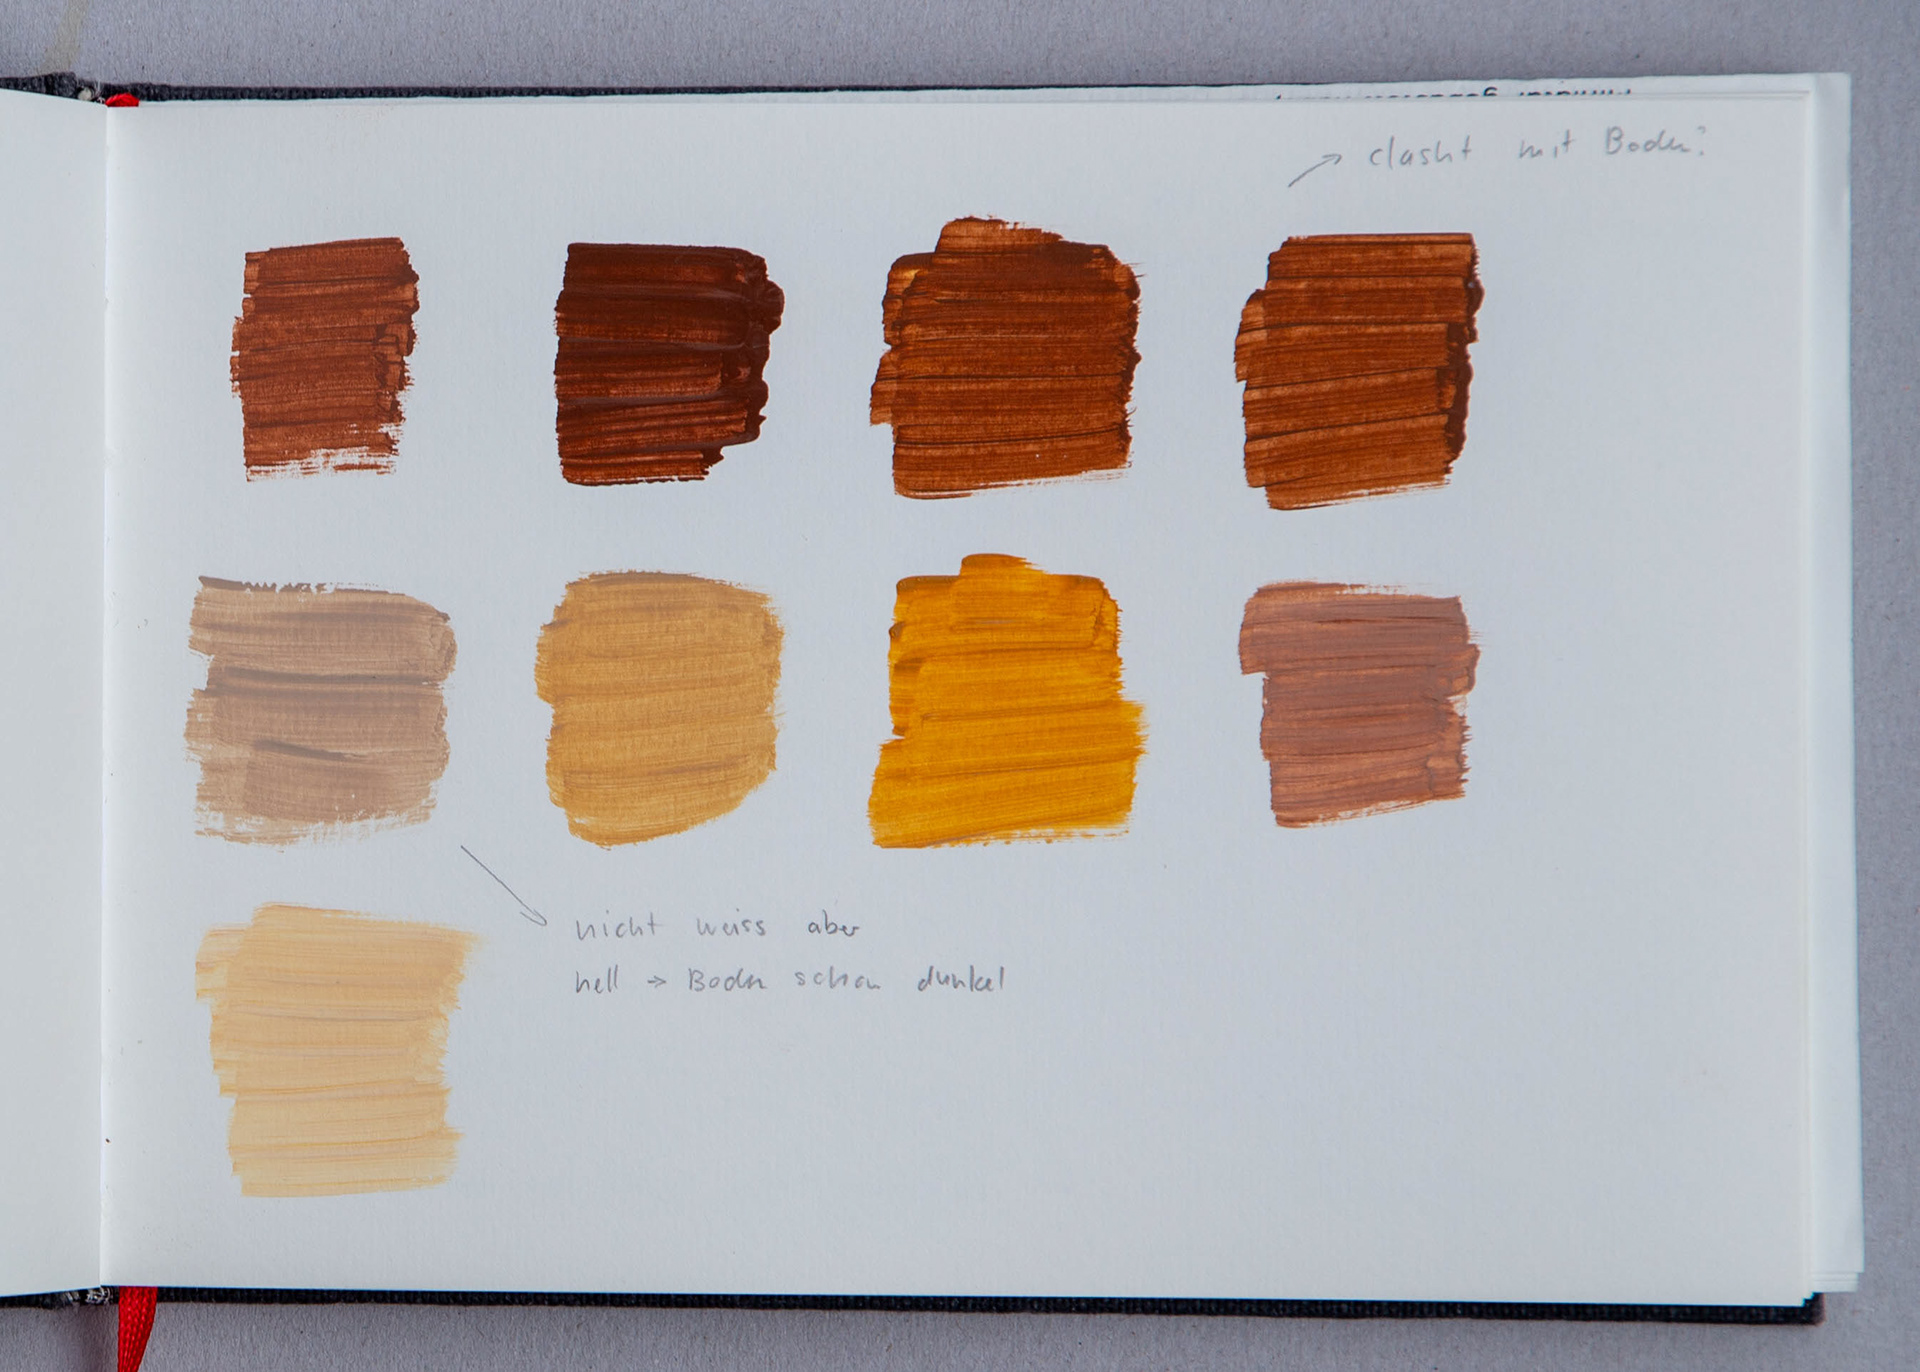 → clasht mit Boden?
nicht weiss aber
hell → Boden schon dunkel